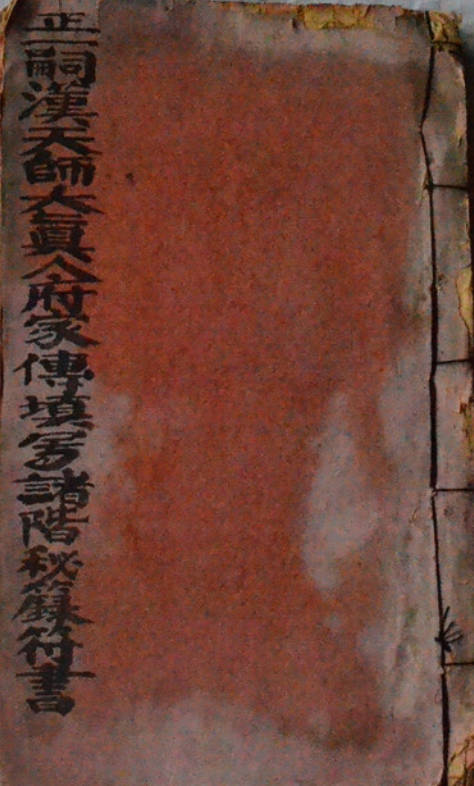 正一嗣漢天師大眞人府家傳填寫諸階秘籙符書